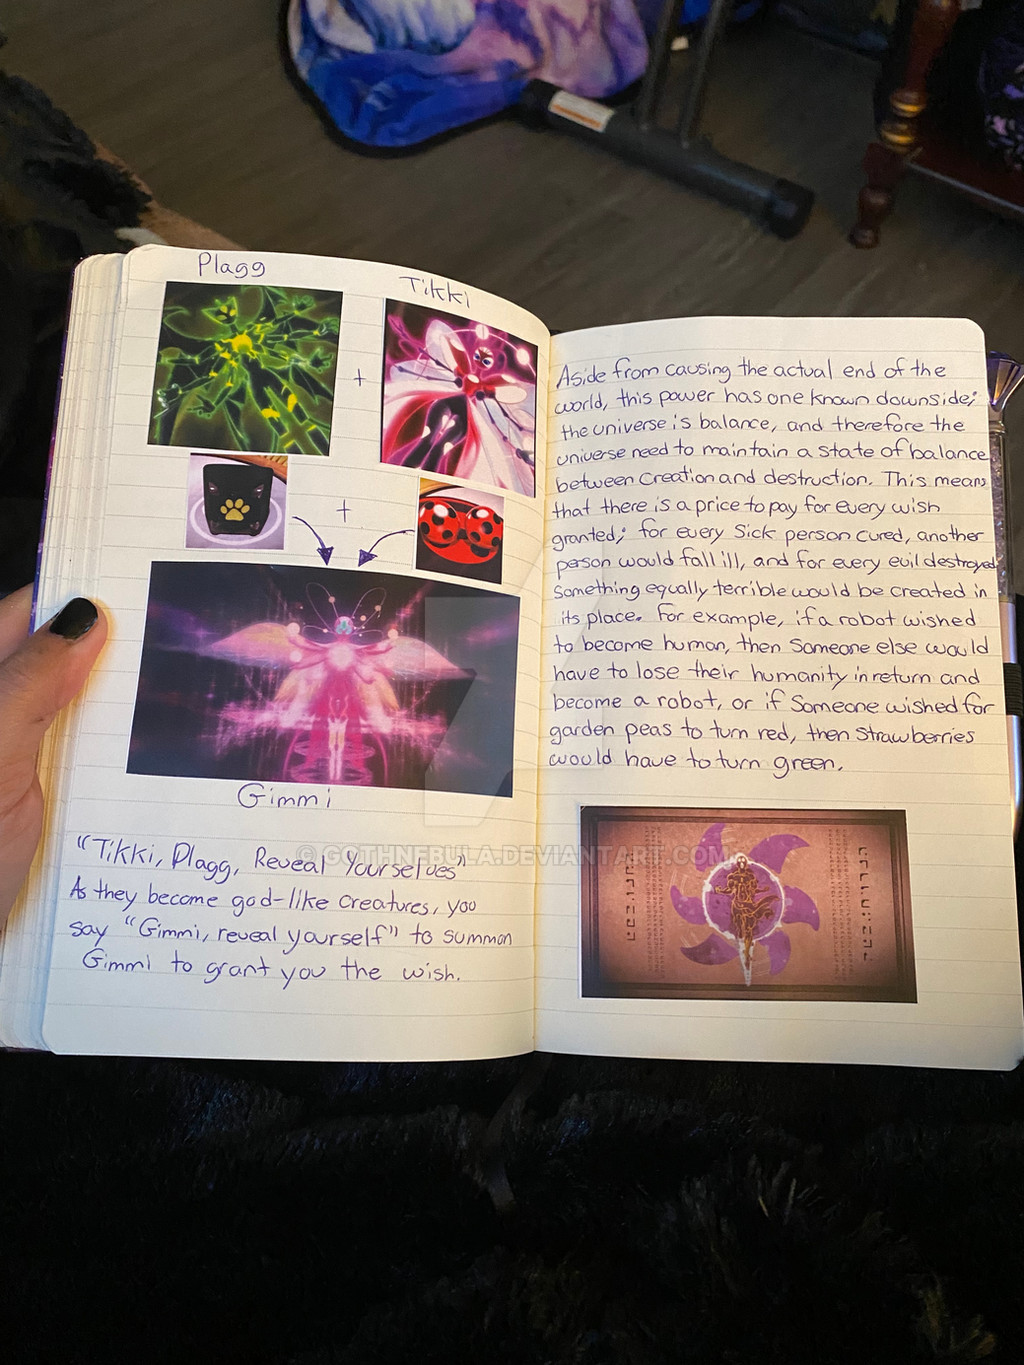 Plagg
Tikki
+
+
Gimmi
"Tikki, Plagg, Reveal Yourselves"
As they become god-like creatures, you
say "Gimmi, reveal yourself" to summon
Gimmi to grant you the wish.
Aside from causing the actual end of the
world, this power has one known downside;
the universe is balance, and therefore the
universe need to maintain a state of balance
between Creation and destruction. This means
that there is a price to pay for every wish
granted; for every Sick person cured, another
person would fall ill, and for every evil destroyed
Something equally terrible would be created in
its place. For example, if a robot wished
to become human, then Someone else would
have to lose their humanity in return and
become a robot, or if Someone wished for
garden peas to turn red, then Strawberries
would have to turn green.
© GOTHNEBULA.DEVIANTART.COM